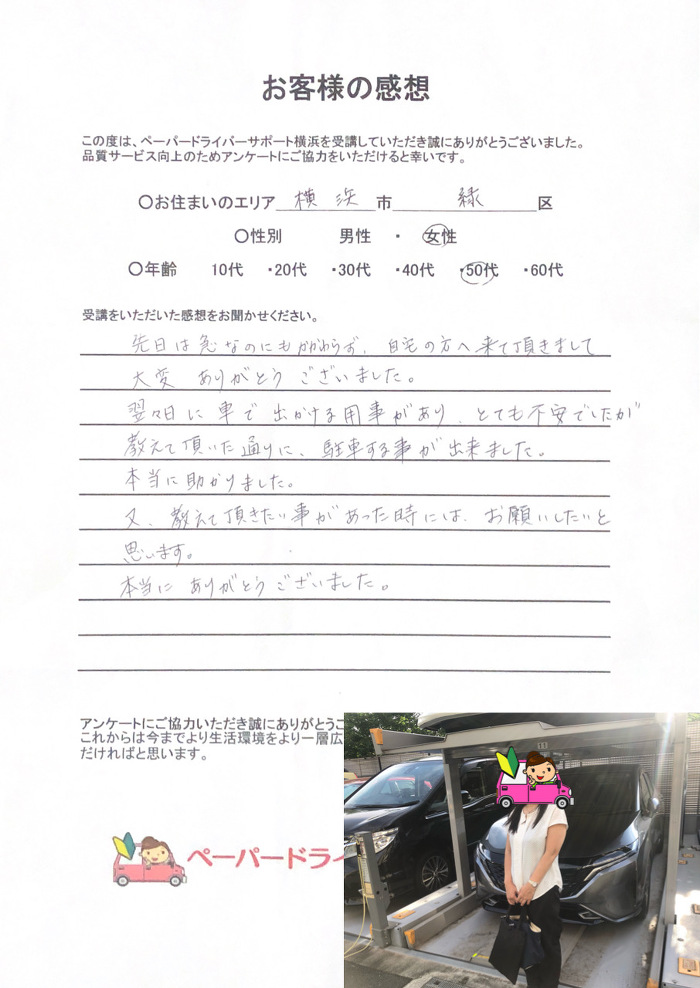 お客様の感想
この度は、ペーパードライバーサポート横浜を受講していただき誠にありがとうございました。
品質サービス向上のためアンケートにご協力をいただけると幸いです。
〇お住まいのエリア 横浜 市 緑 区
〇性別 男性 ・ 女性
〇年齢 10代 ・20代 ・30代 ・40代 ・50代 ・60代
受講をいただいた感想をお聞かせください。
先日は急なのにもかかわらず、自宅の方へ来て頂きまして
大変 ありがとう ございました。
翌々日に車で出かける用事があり、とても不安でしたが
教えて頂いた通りに、駐車する事が出来ました。
本当に助かりました。
又、教えて頂きたい事があった時には、お願いしたいと
思います。
本当に ありがとう ございました。
アンケートにご協力いただき誠にありがとうご
これからは今までより生活環境をより一層広
だければと思います。
ペーパードライ
11